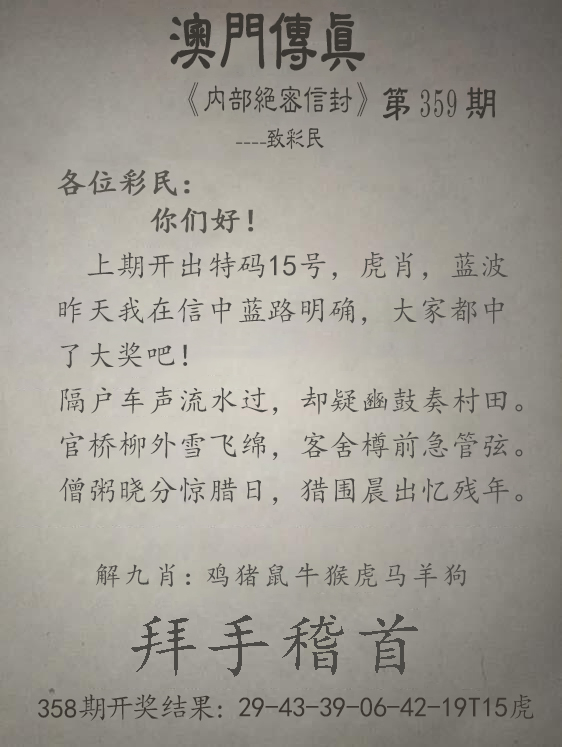 澳門傳眞
《内部絕密信封》第359期
----致彩民
各位彩民：
你们好！
上期开出特码15号，虎肖，蓝波
昨天我在信中蓝路明确，大家都中
了大奖吧！
隔户车声流水过，却疑豳鼓奏村田。
官桥柳外雪飞绵，客舍樽前急管弦。
僧粥晓分惊腊日，猎围晨出忆残年。
解九肖：鸡猪鼠牛猴虎马羊狗
拜手稽首
358期开奖结果：29-43-39-06-42-19T15虎